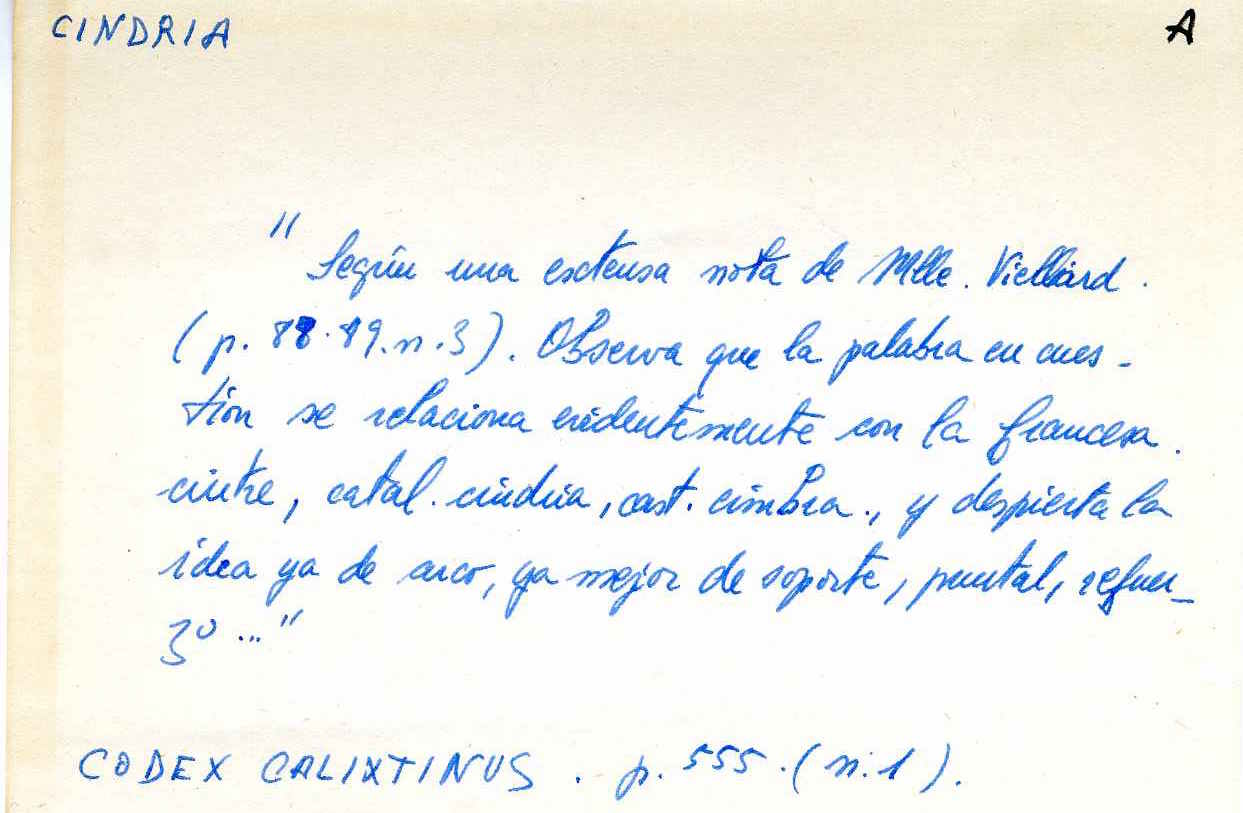 CINDRIA A
" Según una extensa nota de Mlle. Vielliard.
(p. 88-89. n. 3). Observa que la palabra en cues-
tion se relaciona evidentemente con la francesa.
cintre, catal. cindria, cast. cimbra., y despierta la
idea ya de arco, ya mejor de soporte, puntal, refuer-
zo ..."
CODEX CALIXTINUS. p. 555. (n. 1).